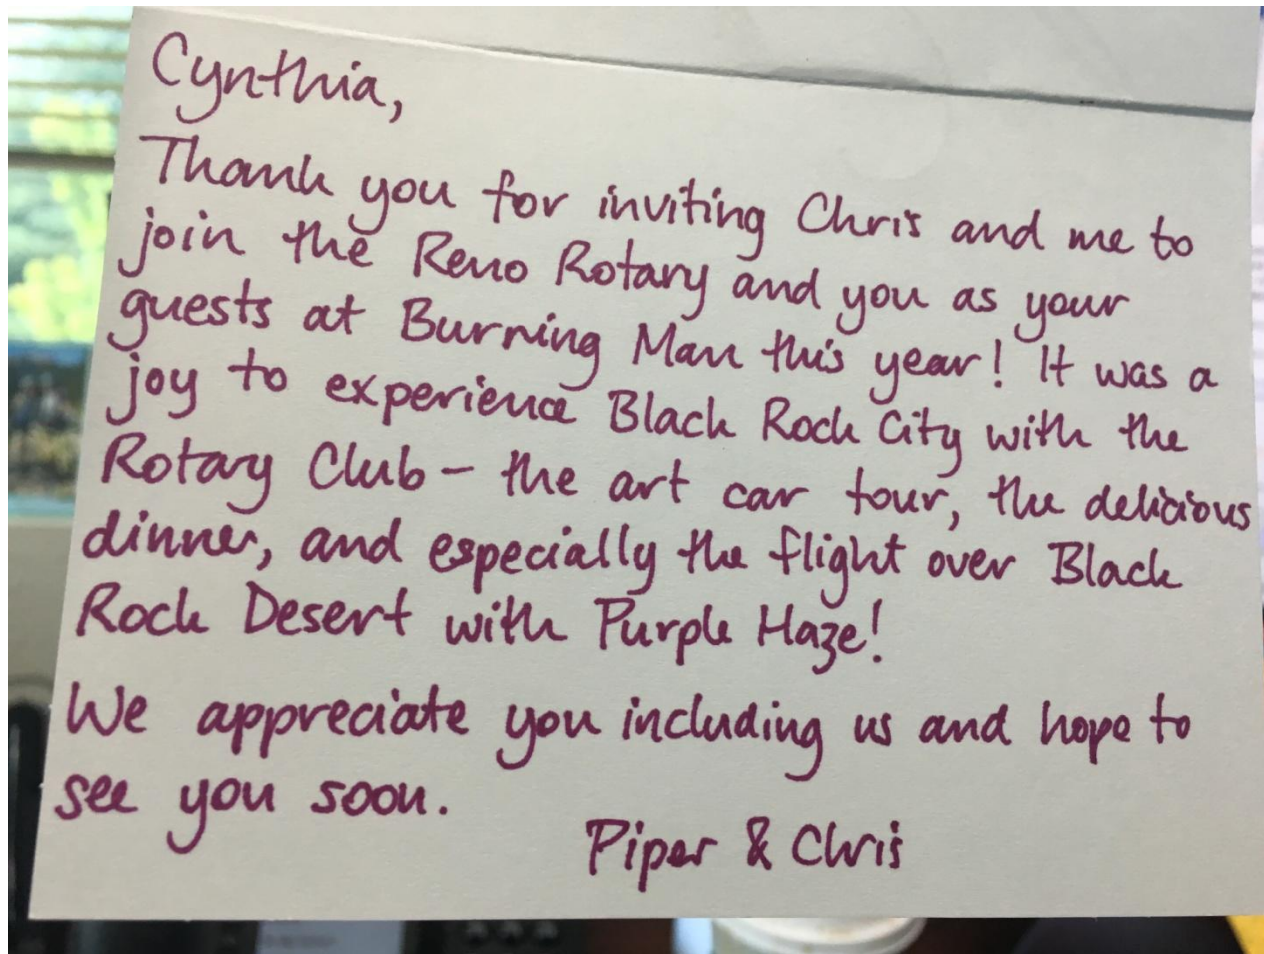 Cynthia,
Thank you for inviting Chris and me to
join the Reno Rotary and you as your
guests at Burning Man this year! It was a
joy to experience Black Rock City with the
Rotary Club – the art car tour, the delicious
dinner, and especially the flight over Black
Rock Desert with Purple Haze!
We appreciate you including us and hope to
see you soon.
Piper & Chris